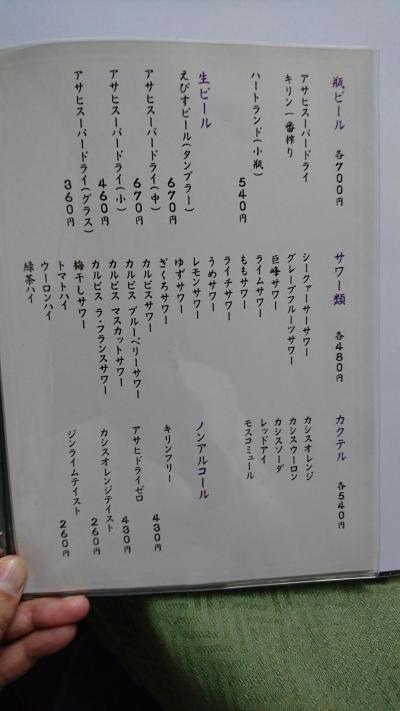 瓶ビール 各700円
アサヒスーパードライ
キリン一番搾り
ハートランド(小瓶) 540円
生ビール
えびすビール(タンブラー) 670円
アサヒスーパードライ(中) 670円
アサヒスーパードライ(小) 460円
アサヒスーパードライ(グラス) 360円
サワー類 各480円
シークァーサーサワー
グレープフルーツサワー
巨峰サワー
ライムサワー
ももサワー
ライチサワー
うめサワー
レモンサワー
ゆずサワー
ざくろサワー
カルピスサワー
カルピス ブルーベリーサワー
カルピス マスカットサワー
カルピス ラ・フランスサワー
梅干しサワー
トマトハイ
ウーロンハイ
緑茶ハイ
カクテル 各540円
カシスオレンジ
カシスウーロン
カシスソーダ
レッドアイ
モスコミュール
ノンアルコール
キリンフリー 430円
アサヒドライゼロ 430円
カシスオレンジテイスト 260円
ジンライムテイスト 260円